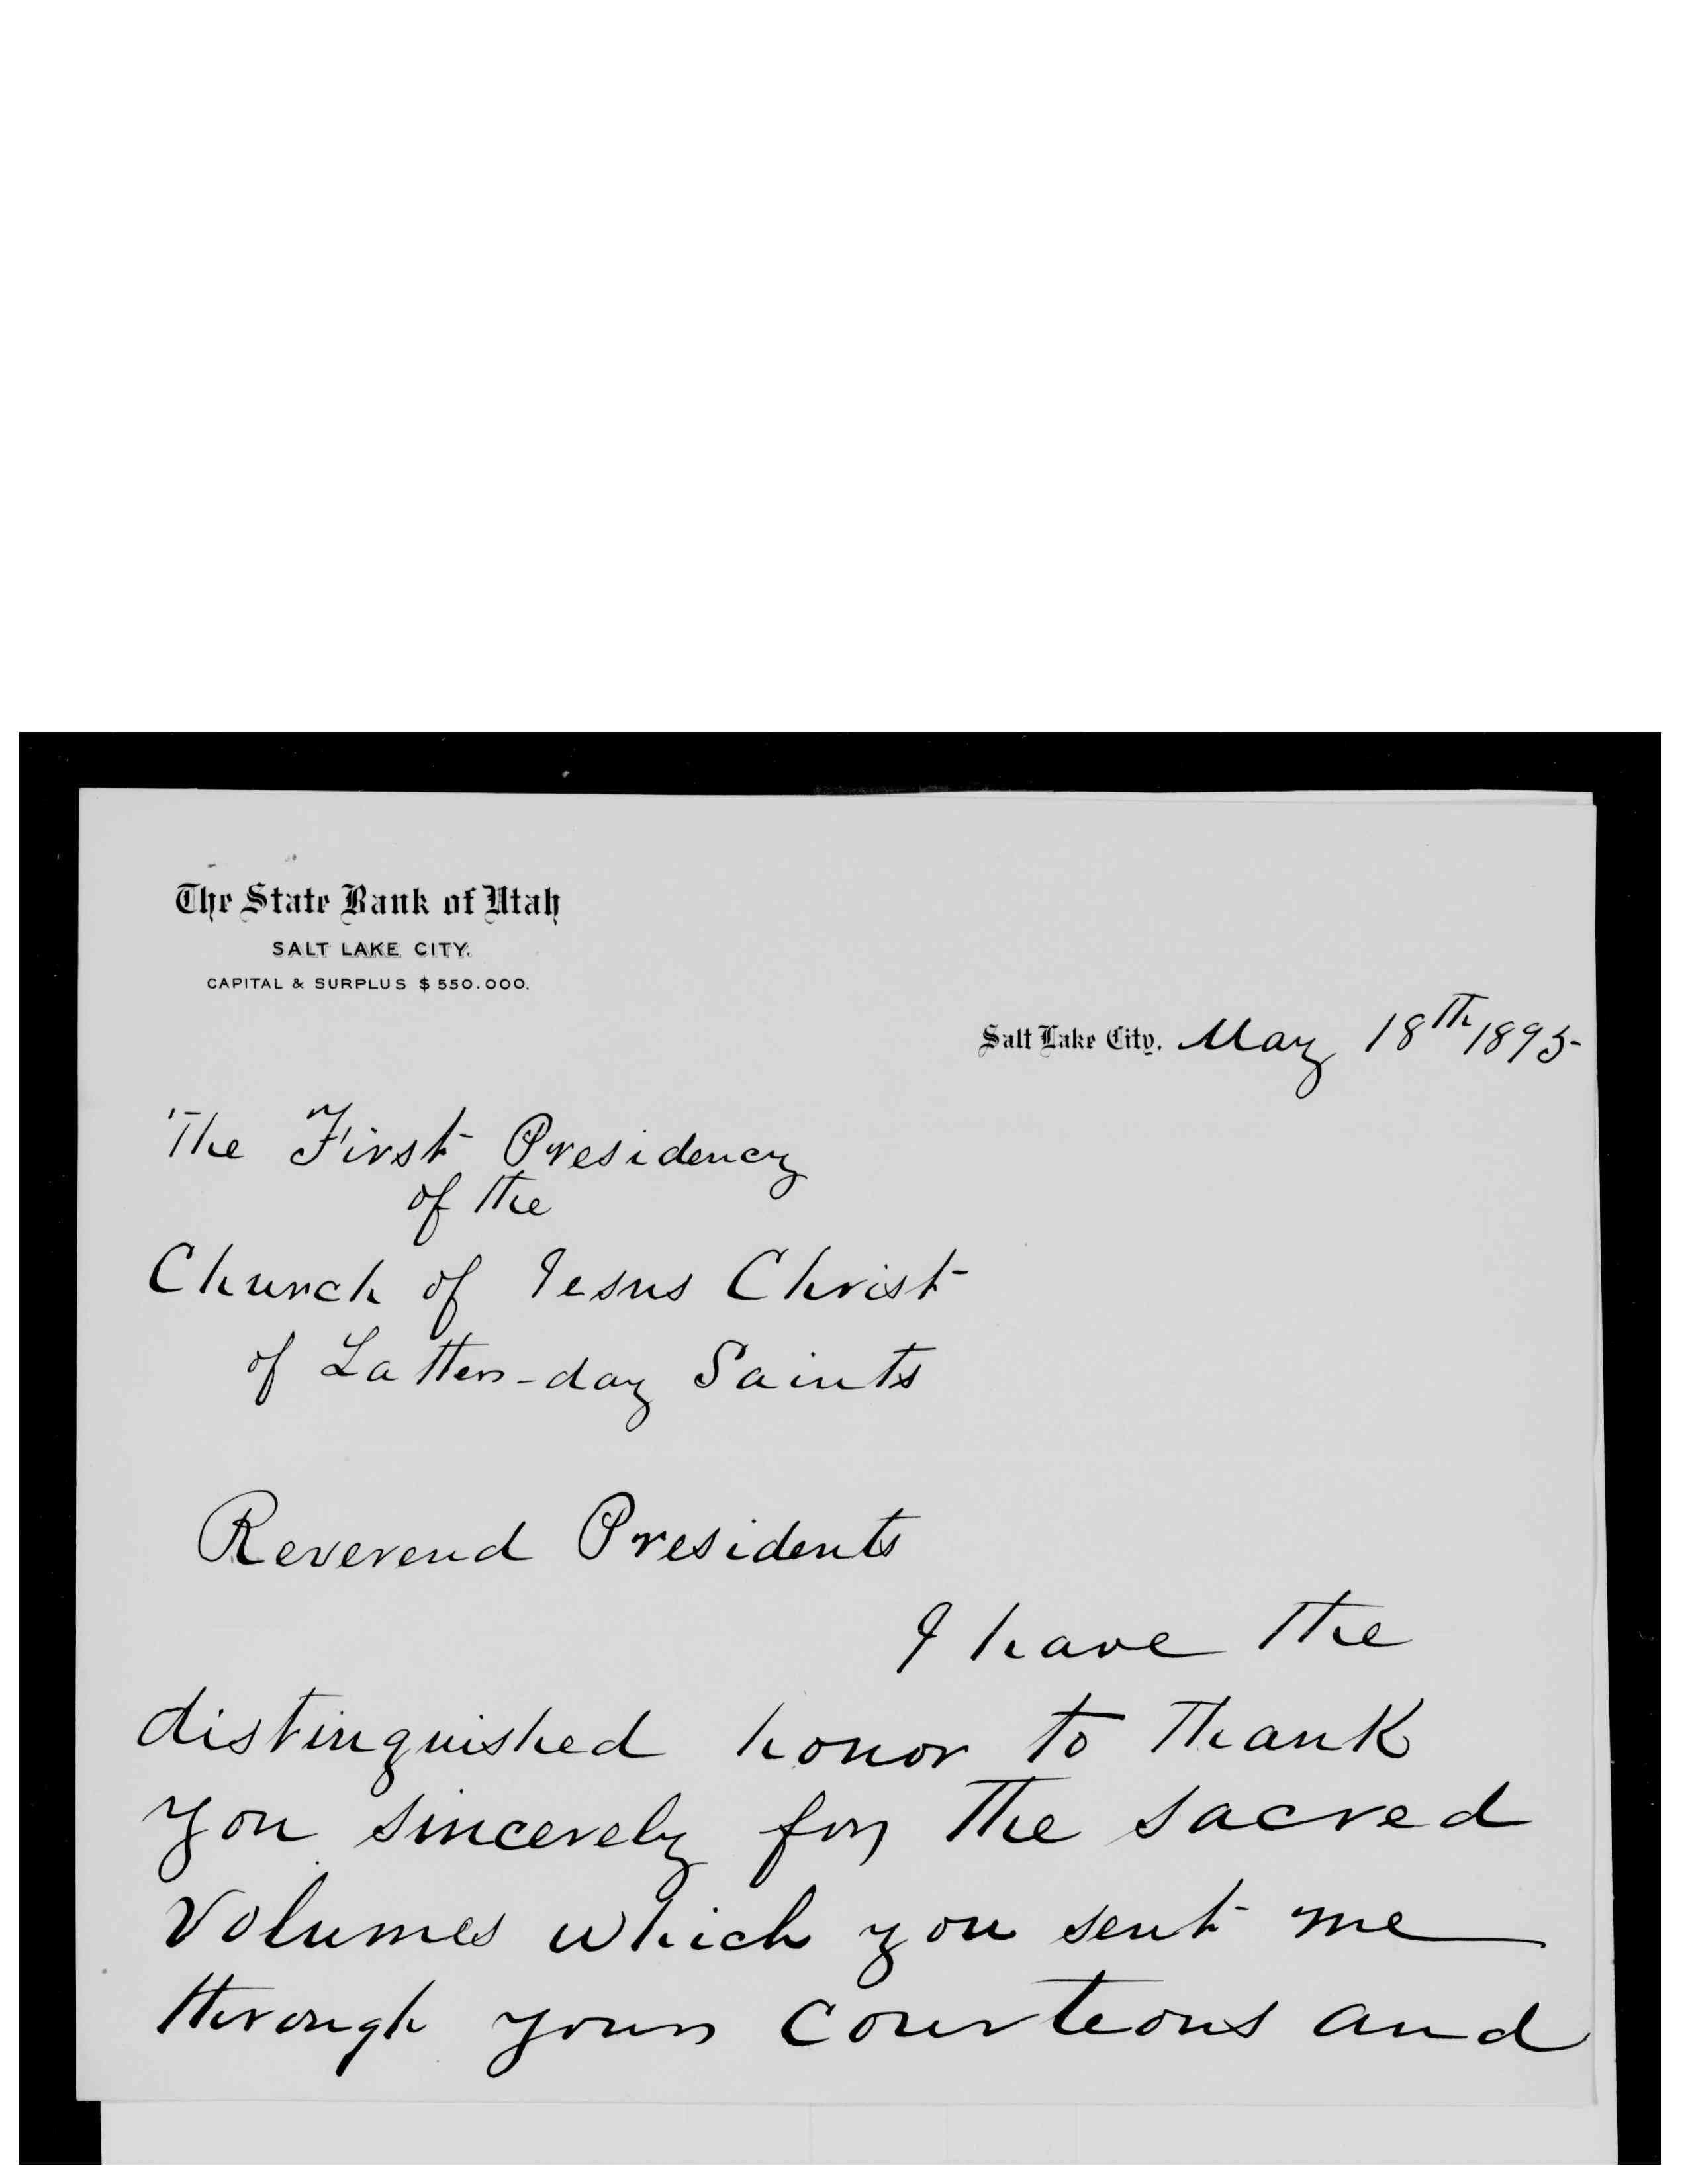 The State Bank of Utah
SALT LAKE CITY.
CAPITAL & SURPLUS $550.000.
Salt Lake City, May 18th 1895-
The First Presidency
of the
Church of Jesus Christ
of Latter-day Saints
Reverend Presidents
I have the
distinguished honor to thank
you sincerely for the sacred
volumes which you sent me
through your courteous and